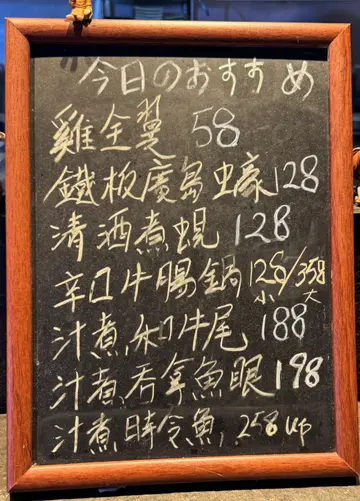 今日のおすすめ
雞全翼 58
鐵板廣島蠔 128
清酒煮蜆 128
辛口牛腸鍋 128/358
小 大
汁煮和牛尾 188
汁煮吞拿魚眼 198
汁煮時令魚, 258 up